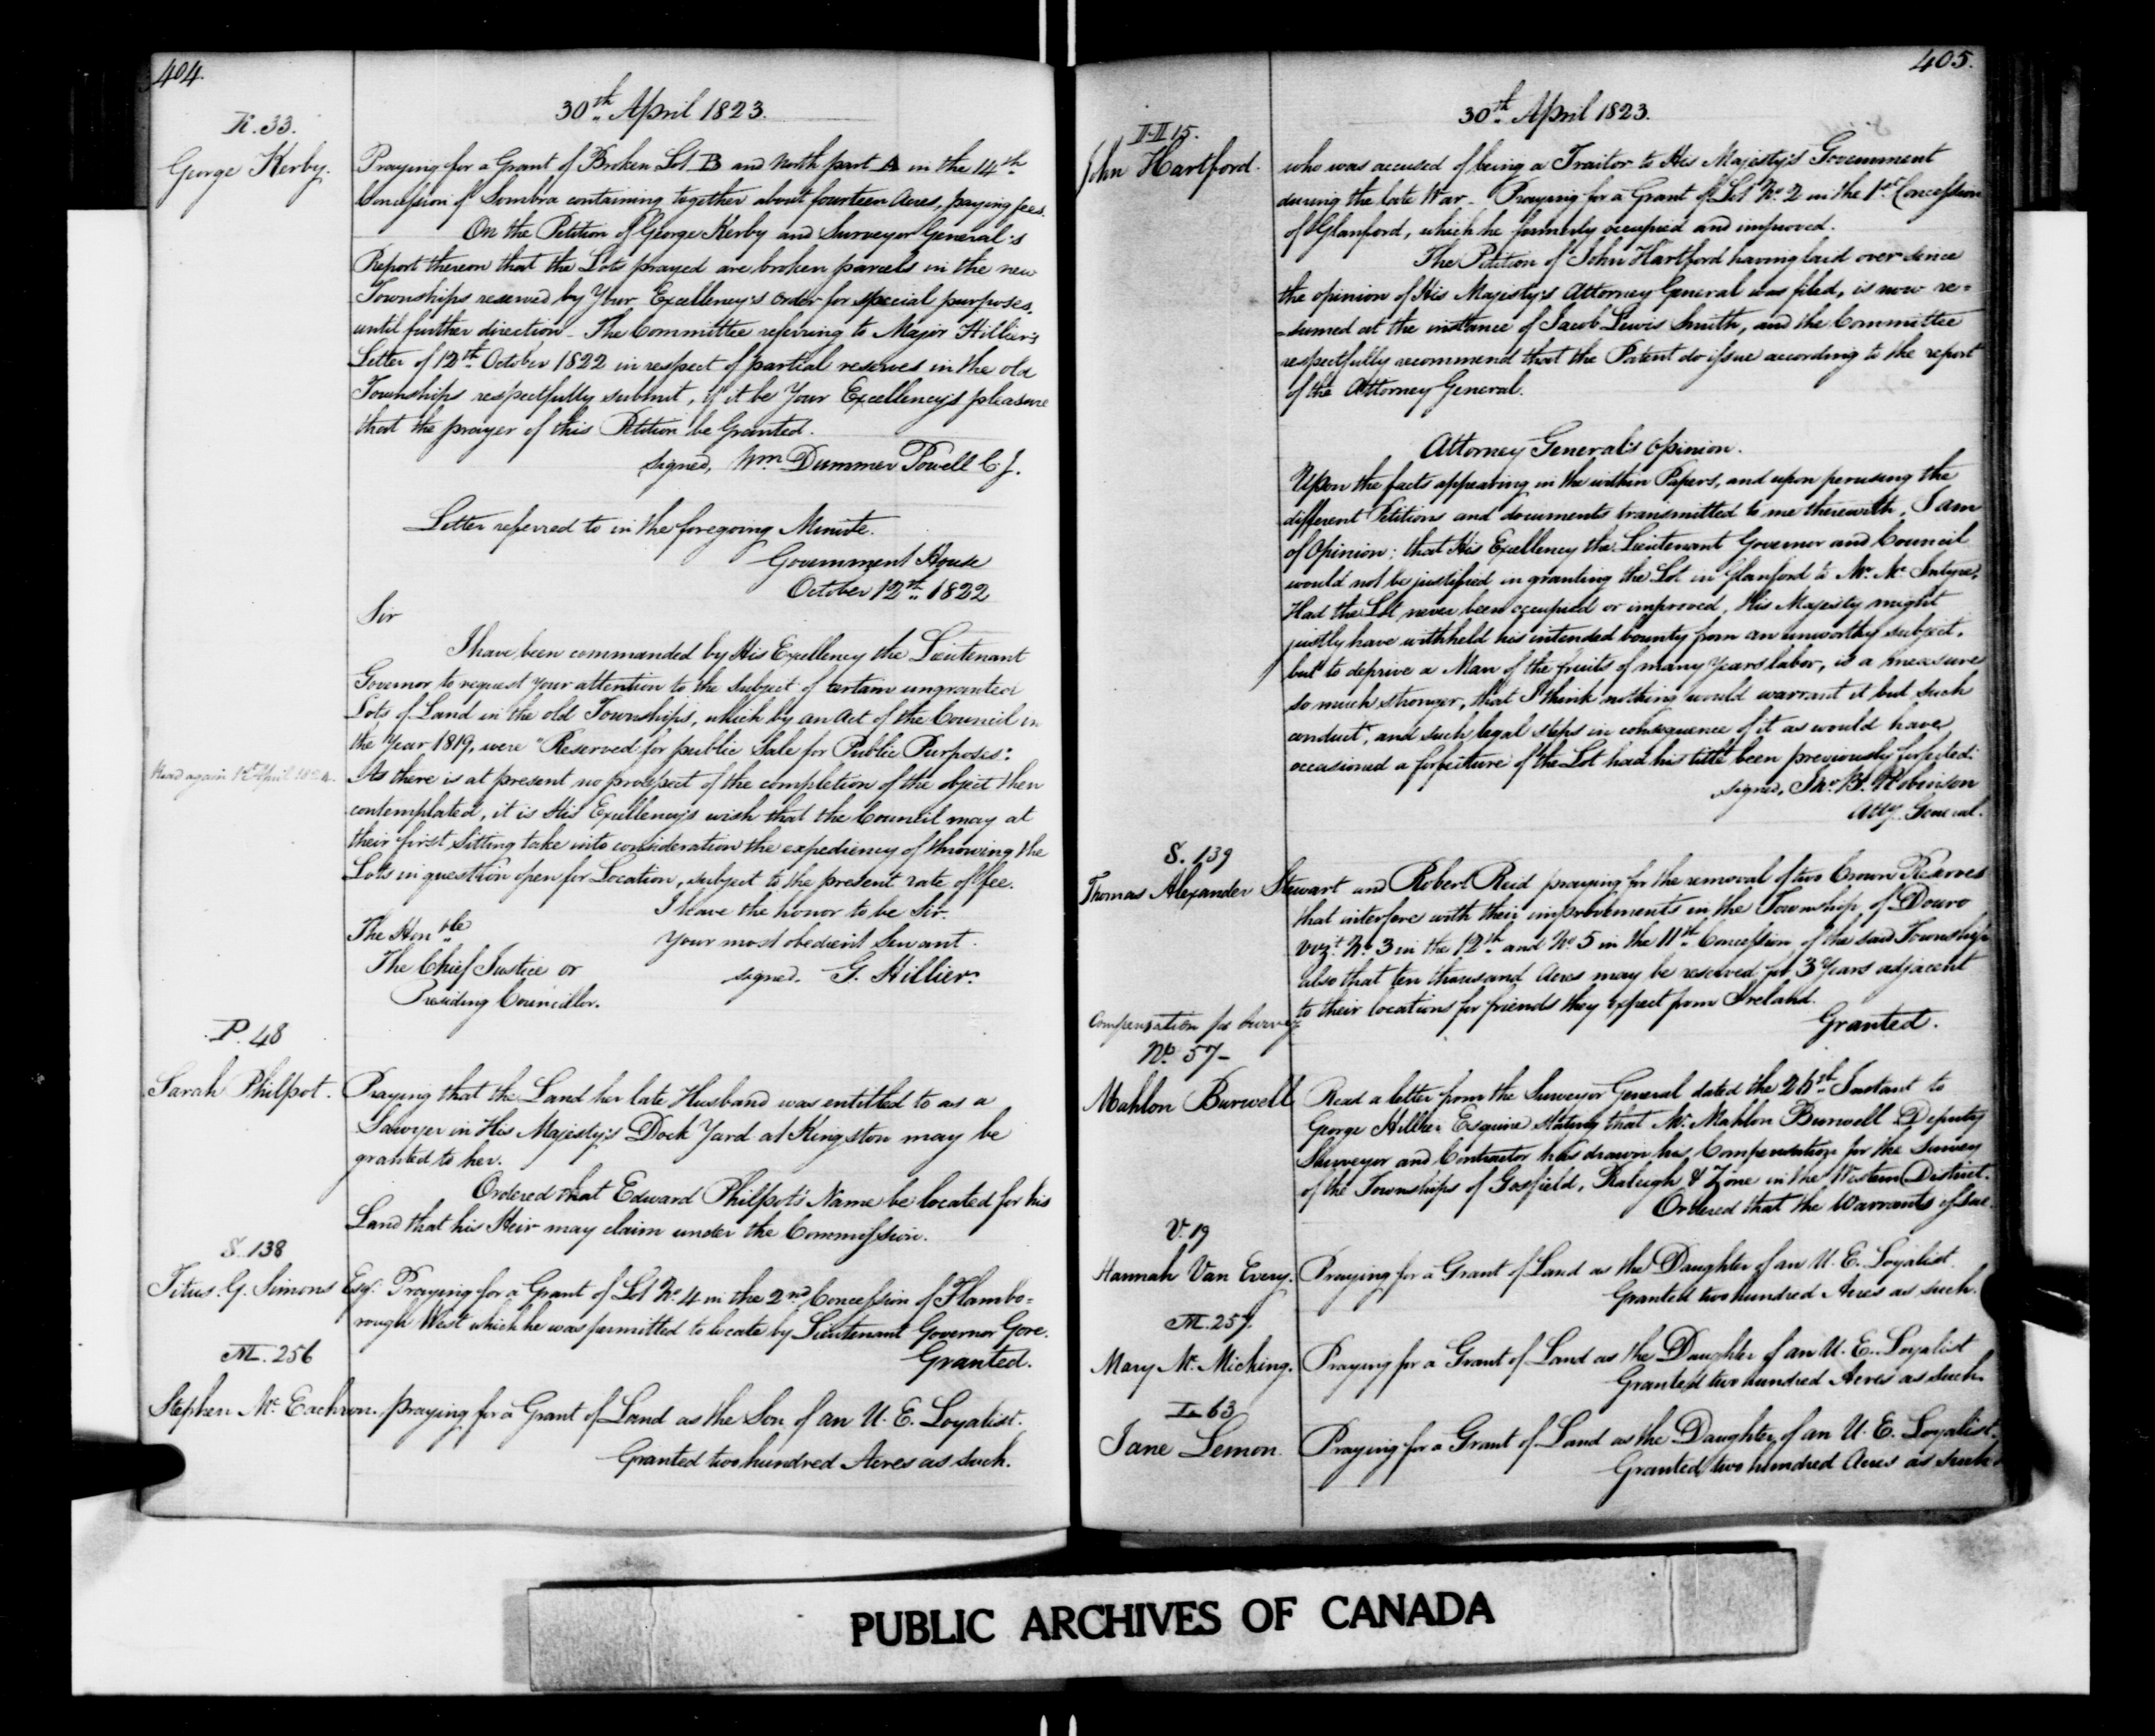 404.
30th April 1823.
K. 33.
George Kerby. Praying for a Grant of Broken Lot B and North part A in the 14th
Concession of Sombra containing together about fourteen Acres, paying fees.
On the Petition of George Kerby and Surveyor General's
Report thereon that the Lots prayed are broken parcels in the new
Townships reserved by Your Excellency's order for special purposes,
until further direction - The Committee referring to Major Hillier's
Letter of 12th October 1822 in respect of partial reserves in the old
Townships respectfully submit, if it be Your Excellency's pleasure
that the prayer of this Petition be Granted.
signed, Wm Dummer Powell C. J.
Letter referred to in the foregoing Minute.
Government House
October 12th 1822
Sir
I have been commanded by His Excellency the Lieutenant
Governor to request your attention to the subject of certain ungranted
Lots of Land in the old Townships, which by an Act of the Council in
the Year 1819, were "Reserved for public Sale for Public Purposes":
Read again 1st April 1824. As there is at present no prospect of the completion of the object then
contemplated, it is His Excellency's wish that the Council may at
their first sitting take into consideration the expediency of throwing the
Lots in question open for Location, subject to the present rate of fee.
I have the honor to be Sir.
The Honble Your most obedient Servant.
The Chief Justice or signed. G. Hillier.
Presiding Councillor.
P. 48
Sarah Philpot. Praying that the Land her late Husband was entitled to as a
Sawyer in His Majesty's Dock Yard at Kingston may be
granted to her.
Ordered that Edward Philpot's Name be located for his
Land that his Heir may claim under the Commission.
S. 138
Titus. G. Simons Esqr. Praying for a Grant of Lot No. 4 in the 2nd Concession of Flambo=
rough West which he was permitted to locate by Lieutenant Governor Gore.
Granted.
M. 256
Stephen Mc Eachron. praying for a Grant of Land as the Son of an U. E. Loyalist.
Granted two hundred Acres as such.
405.
30th April 1823.
H 15.
John Hartford. who was accused of being a Traitor to His Majesty's Government
during the late War - Praying for a Grant of Lot No. 2 in the 1st Concession
of Glanford, which he formerly occupied and improved.
The Petition of John Hartford having laid over since
the opinion of His Majesty's Attorney General was filed, is now re=
=sumed at the instance of Jacob Lewis Smith, and the Committee
respectfully recommend that the Patent do issue according to the report
of the Attorney General.
Attorney General's Opinion.
Upon the facts appearing in the within Papers, and upon perusing the
different Petitions and documents transmitted to me therewith, I am
of Opinion; that His Excellency the Lieutenant Governor and Council
would not be justified in granting the Lot in Glanford to Mr. Mc Intyre,
Had the Lot never been occupied or improved, His Majesty might
justly have withheld his intended bounty from an unworthy subject,
but to deprive a Man of the fruits of many Years labor, is a measure
so much stronger, that I think nothing would warrant it but such
conduct, and such legal steps in consequence of it as would have
occasioned a forfeiture of the Lot had his title been previously perfected.
signed, Jno. B. Robinson
Atty. General.
S. 139
Thomas Alexander Stewart and Robert Reid praying for the removal of two Crown Reserves
that interfere with their improvements in the Township of Douro
vizt. No. 3 in the 12th and No 5 in the 11th Concession of the said Township
also that ten thousand Acres may be reserved for 3 Years adjacent
to their locations for friends they expect from Ireland.
Granted.
Compensation for Survey
No. 57 -
Mahlon Burwell Read a letter from the Surveyor General dated the Instant to
George Hillier Esquire stating that Mr. Mahlon Burwell Deputy
Surveyor and Contractor has drawn his Compensation for the Survey
of the Townships of Gosfield, Raleigh & Zone in the Western District.
Ordered that the Warrants issue.
V. 19
Hannah Van Every. Praying for a Grant of Land as the Daughter of an U. E. Loyalist.
Granted two hundred Acres as such.
M. 257.
Mary Mc. Miching. Praying for a Grant of Land as the Daughter of an U. E. Loyalist
Granted two hundred Acres as such.
L 63
Jane Lemon. Praying for a Grant of Land as the Daughter of an U. E. Loyalist.
Granted two hundred Acres as such.
PUBLIC ARCHIVES OF CANADA